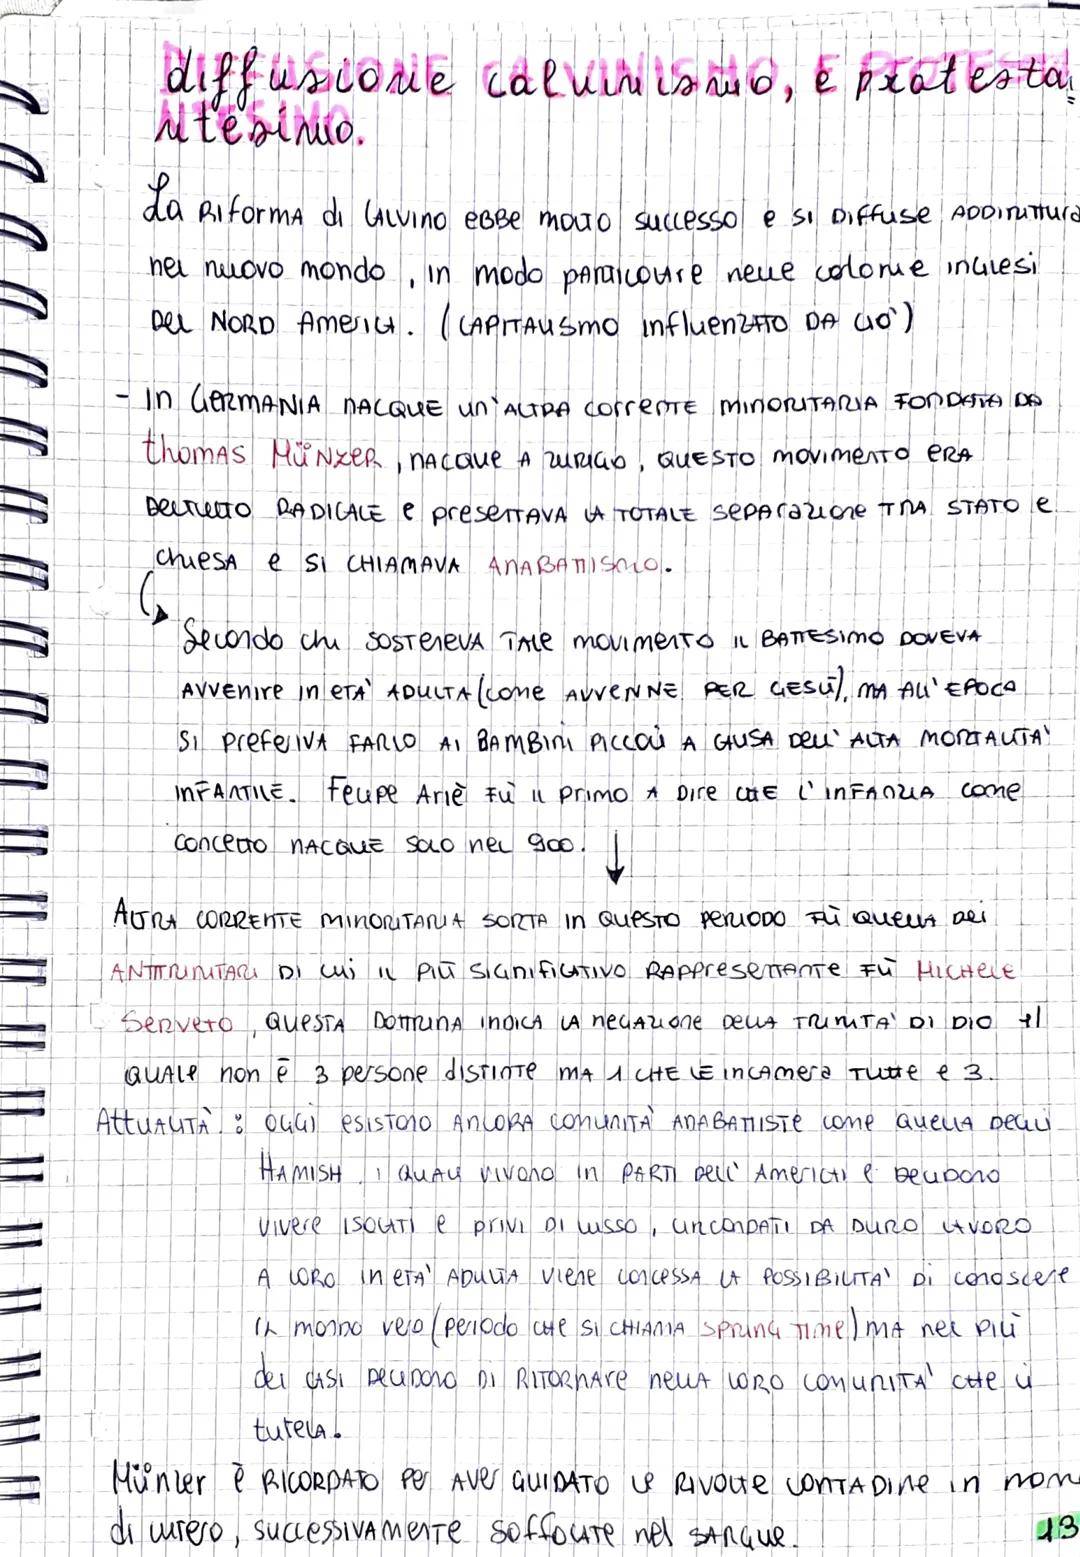 diffusione calvinismo, e protesta
ntesimo.
La Riforma di Calvino ebbe molto successo e si diffuse addirittura
nel nuovo mondo, in modo particolare nelle colonie inglesi
del Nord America. (capitalismo influenzato da ciò)
- In Germania nacque un'altra corrente minoritaria fondata da
Thomas Münzer, nacque a Zurigo, questo movimento era
definito radicale e presentava la totale separazione tra stato e
chiesa e si chiamava anabattismo.
Secondo chi sosteneva tale movimento il battesimo doveva
avvenire in età adulta (come avvenne per Gesù), ma all'epoca
si preferiva farlo ai bambini piccoli a causa dell'alta mortalità
infantile. Felipe Ariè fù il primo a dire che l'infanzia come
concetto nacque solo nel 900.
Altra corrente minoritaria sorta in questo periodo fù quella dei
antitrinitari di cui il più significativo rappresentante fù Michele
Serveto, questa dottrina indica la negazione della trinità di Dio il
quale non è 3 persone distinte ma 1 che le incamera tutte e 3.
Attualità: oggi esistono ancora comunità anabattiste come quella degli
Hamish i quali vivono in parti dell'America e decidono
vivere isolati e privi di lusso, circondati da duro lavoro
a loro in età adulta viene concessa la possibilità di conoscere
il mondo vero (periodo che si chiama spring time) ma nei più
dei casi decidono di ritornare nella loro comunità che li
tutela.
Münzer è ricordato per aver guidato le rivolte contadine in nom
di Lutero, successivamente soffocate nel sangue.
13